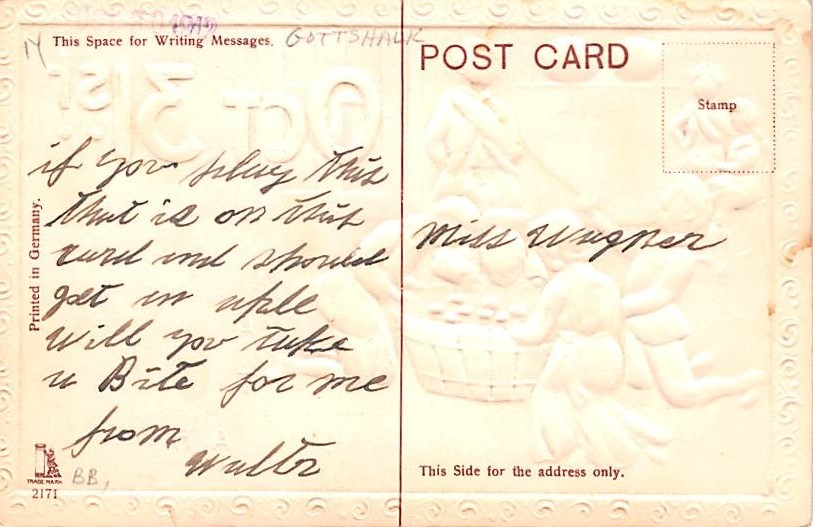 1912
N
This Space for Writing Messages.
GOTTSHALK
if you play this
that is on this
card and should
get an aple
will you take
a Bite for me
from
Walter
Printed in Germany.
TRADE MARK
2171
BB,
POST CARD
Stamp
Miss Wagner
This Side for the address only.
Oct 31st